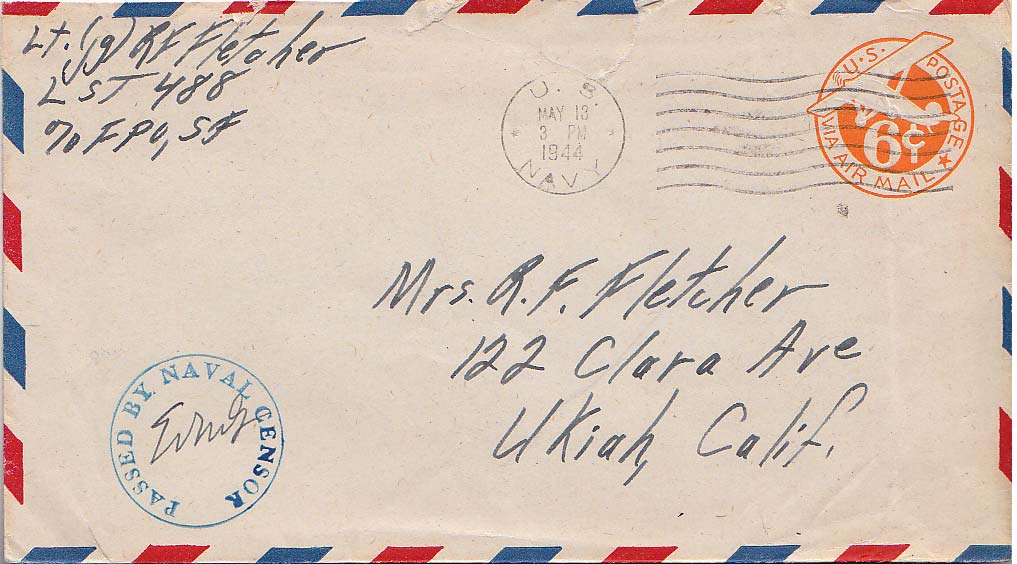 Lt. (jg) R F Fletcher
LST 488
c/o FPO, SF
U. S.
MAY 13
3 PM
1944
NAVY
U.S. POSTAGE
6¢
VIA AIR MAIL
Mrs. R. F. Fletcher
122 Clara Ave
Ukiah, Calif.
PASSED BY NAVAL CENSOR